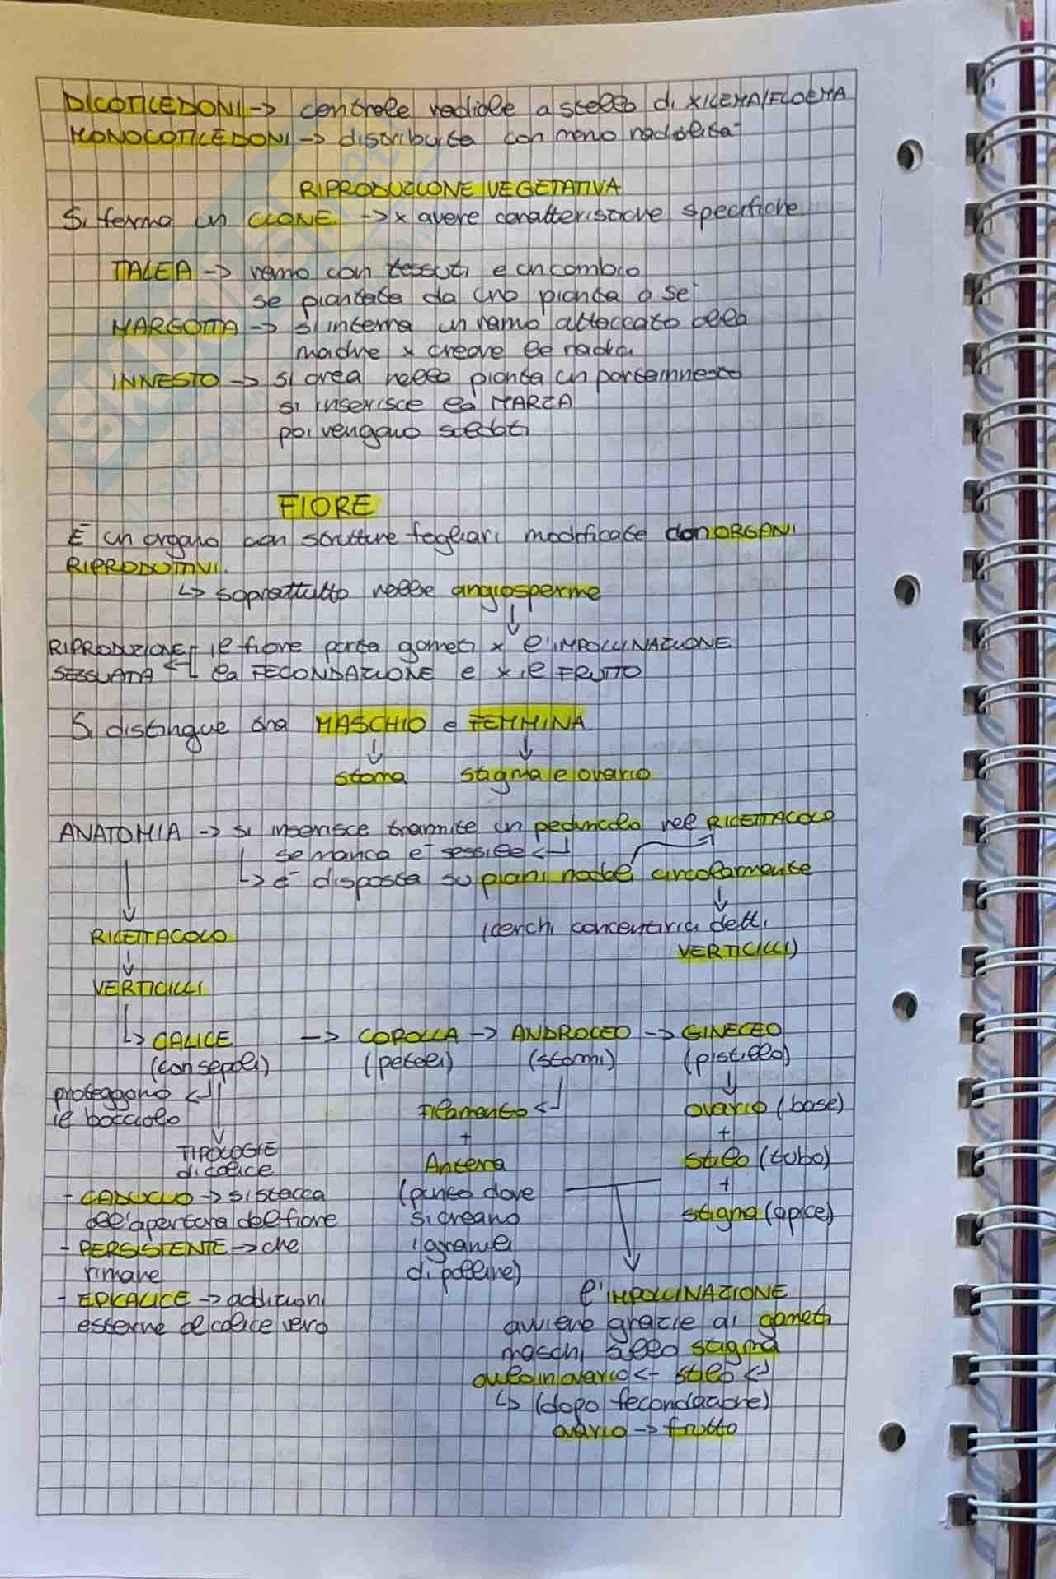 DICOTILEDONI -> centrale radiale a stella di XILEMA/FLOEMA
MONOCOTILEDONI -> distribuita con meno radialità
RIPRODUZIONE VEGETATIVA
Si forma un CLONE -> x avere caratteristiche specifiche
TALEA -> ramo con tessuti e un cambio
se piantata da una pianta a sé
MARGOTTA -> si interra un ramo attaccato alla
madre x creare le radici
INNESTO -> si crea nella pianta un portainnesto
si inserisce la MARZA
poi vengano
FIORE
È un organo con strutture fogliari modificate con ORGANI
RIPRODUTTIVI.
↳ soprattutto nelle angiosperme
↓
RIPRODUZIONE il fiore porta gameti x l'IMPOLLINAZIONE
SESSUATA <- la FECONDAZIONE e x il FRUTTO
Si distingue tra MASCHIO e FEMMINA
↓ ↓
stama stigma e ovario
ANATOMIA -> si inserisce tramite un peduncolo nel RICETTACOLO
se manca è sessile <-
↳ è disposta su piani nodali circolarmente
↓
RICETTACOLO (cerchi concentrici detti
↓ VERTICILLI)
VERTICILLI
↳ CALICE -> COROLLA -> ANDROCEO -> GINECEO
(con sepali) (petali) (stami) (pistillo)
proteggono <- ↓
il bocciolo Filamento <- ovario (base)
↓ + +
TIPOLOGIE Antera stilo (tubo)
di calice +
- CADUCO -> si stacca (punto dove stigma (apice)
all'apertura del fiore si creano
- PERSISTENTE -> che i granuli
rimane di polline)
- EPICALICE -> addizioni l'IMPOLLINAZIONE
esterne al calice vero avviene grazie ai gameti
maschi sullo stigma
ovulo in ovario <- stilo <-
↳ (dopo fecondazione)
ovario -> frutto